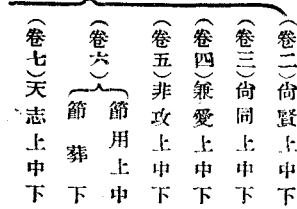 (卷二)尙賢上中下
(卷三)尙同上中下
(卷四)兼愛上中下
(卷五)非攻上中下
(卷六)節用上中
節葬下
(卷七)天志上中下